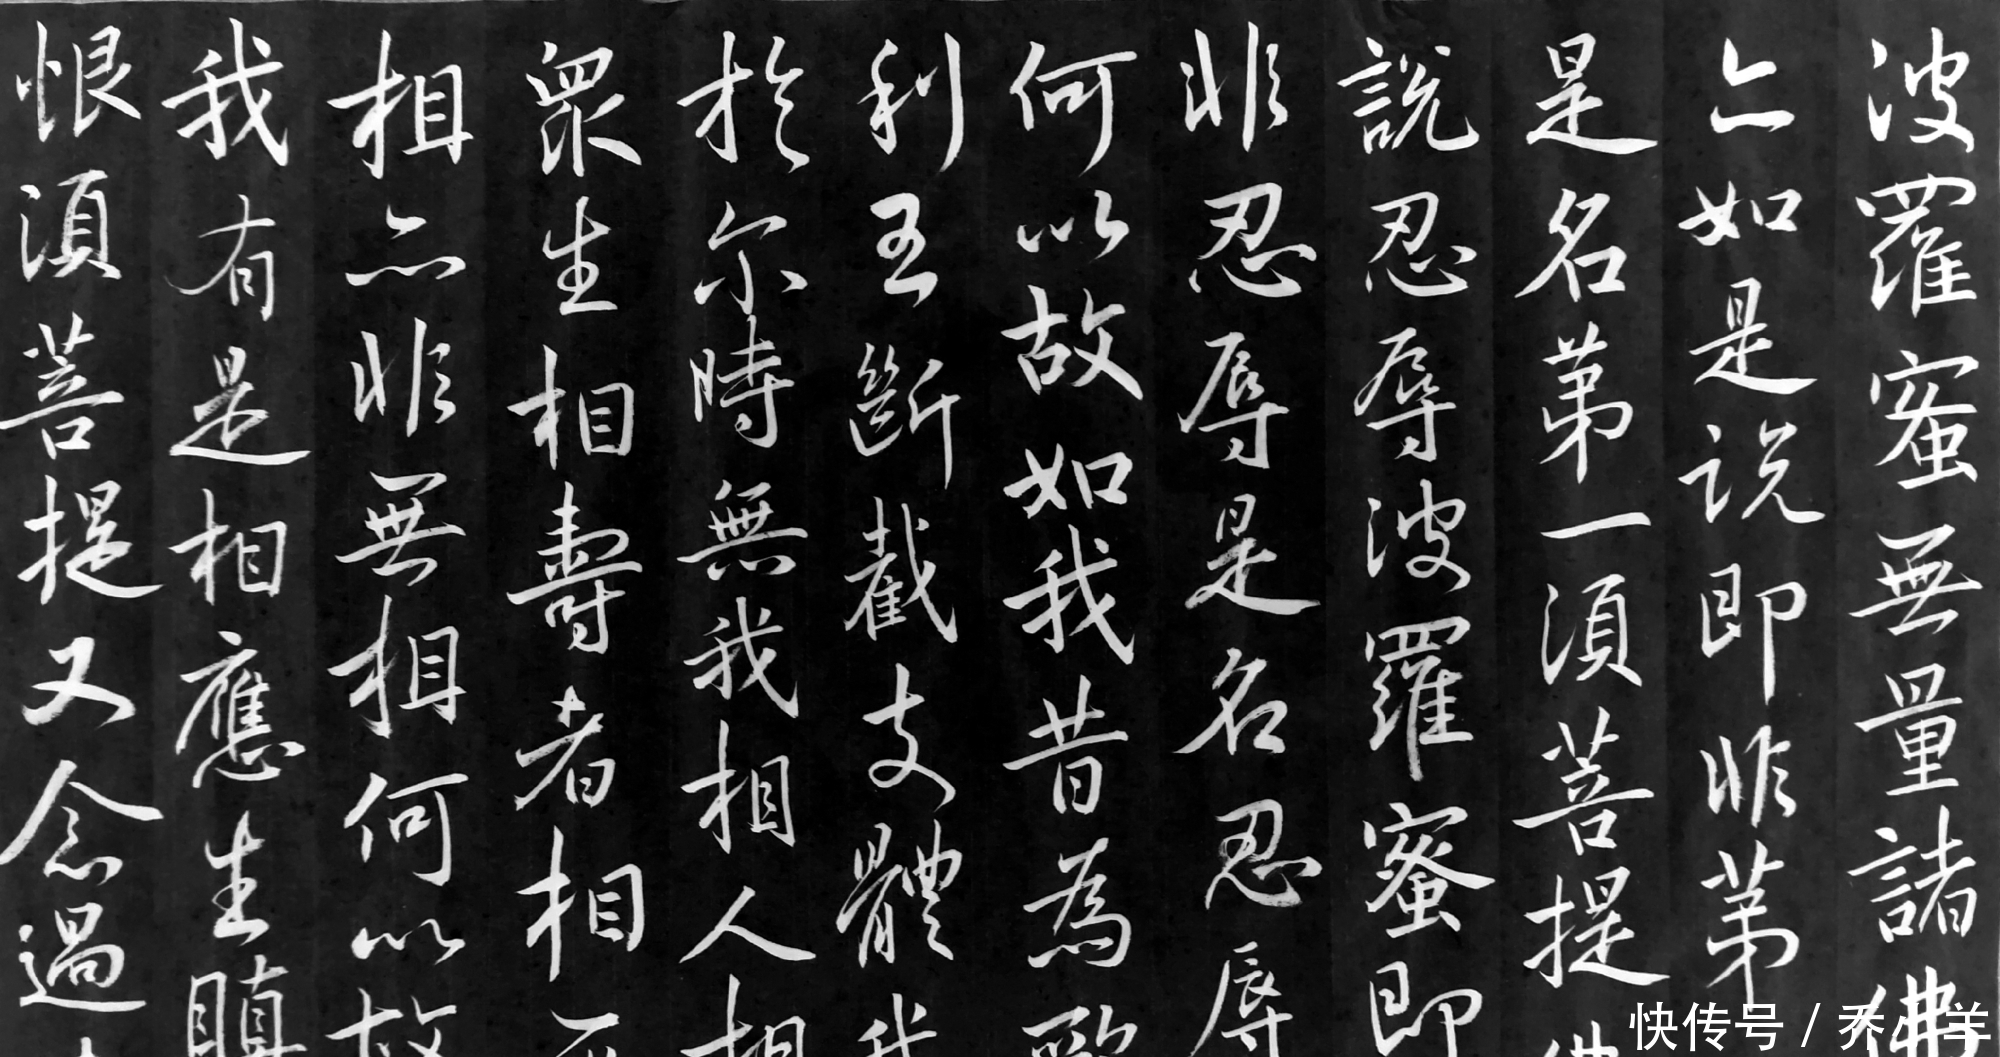 波羅蜜無量諸佛
亦如是说即非苐
是名苐一須菩提佛
說忍辱波羅蜜即
非忍辱是名忍辱
何以故如我昔為歌
利王斷截支體我
於尔時無我相人相
眾生相壽者相
相亦非無相何以故
我有是相應生瞋
恨須菩提又念過
快传号 / 乔小羊